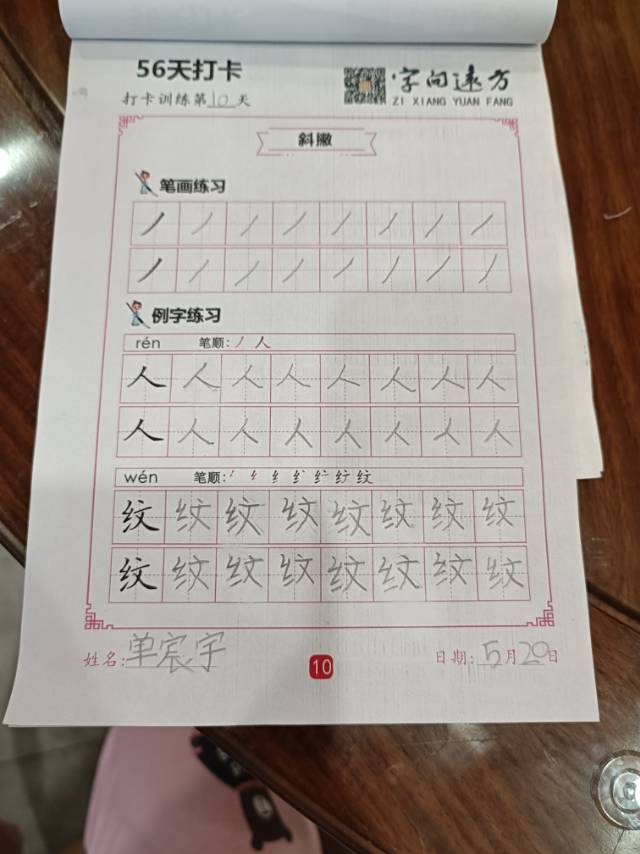 56天打卡
字向远方
打卡训练第10天
ZI XIANG YUAN FANG
斜撇
笔画练习
丿丿丿丿丿丿丿丿
丿丿丿丿丿丿丿丿
例字练习
rén 笔顺: 丿 人
人人人人人人人人
人人人人人人人人
wén 笔顺: 纹
纹纹纹纹纹纹纹纹
纹纹纹纹纹纹纹纹
姓名: 单宸宇 10 日期: 5月20日